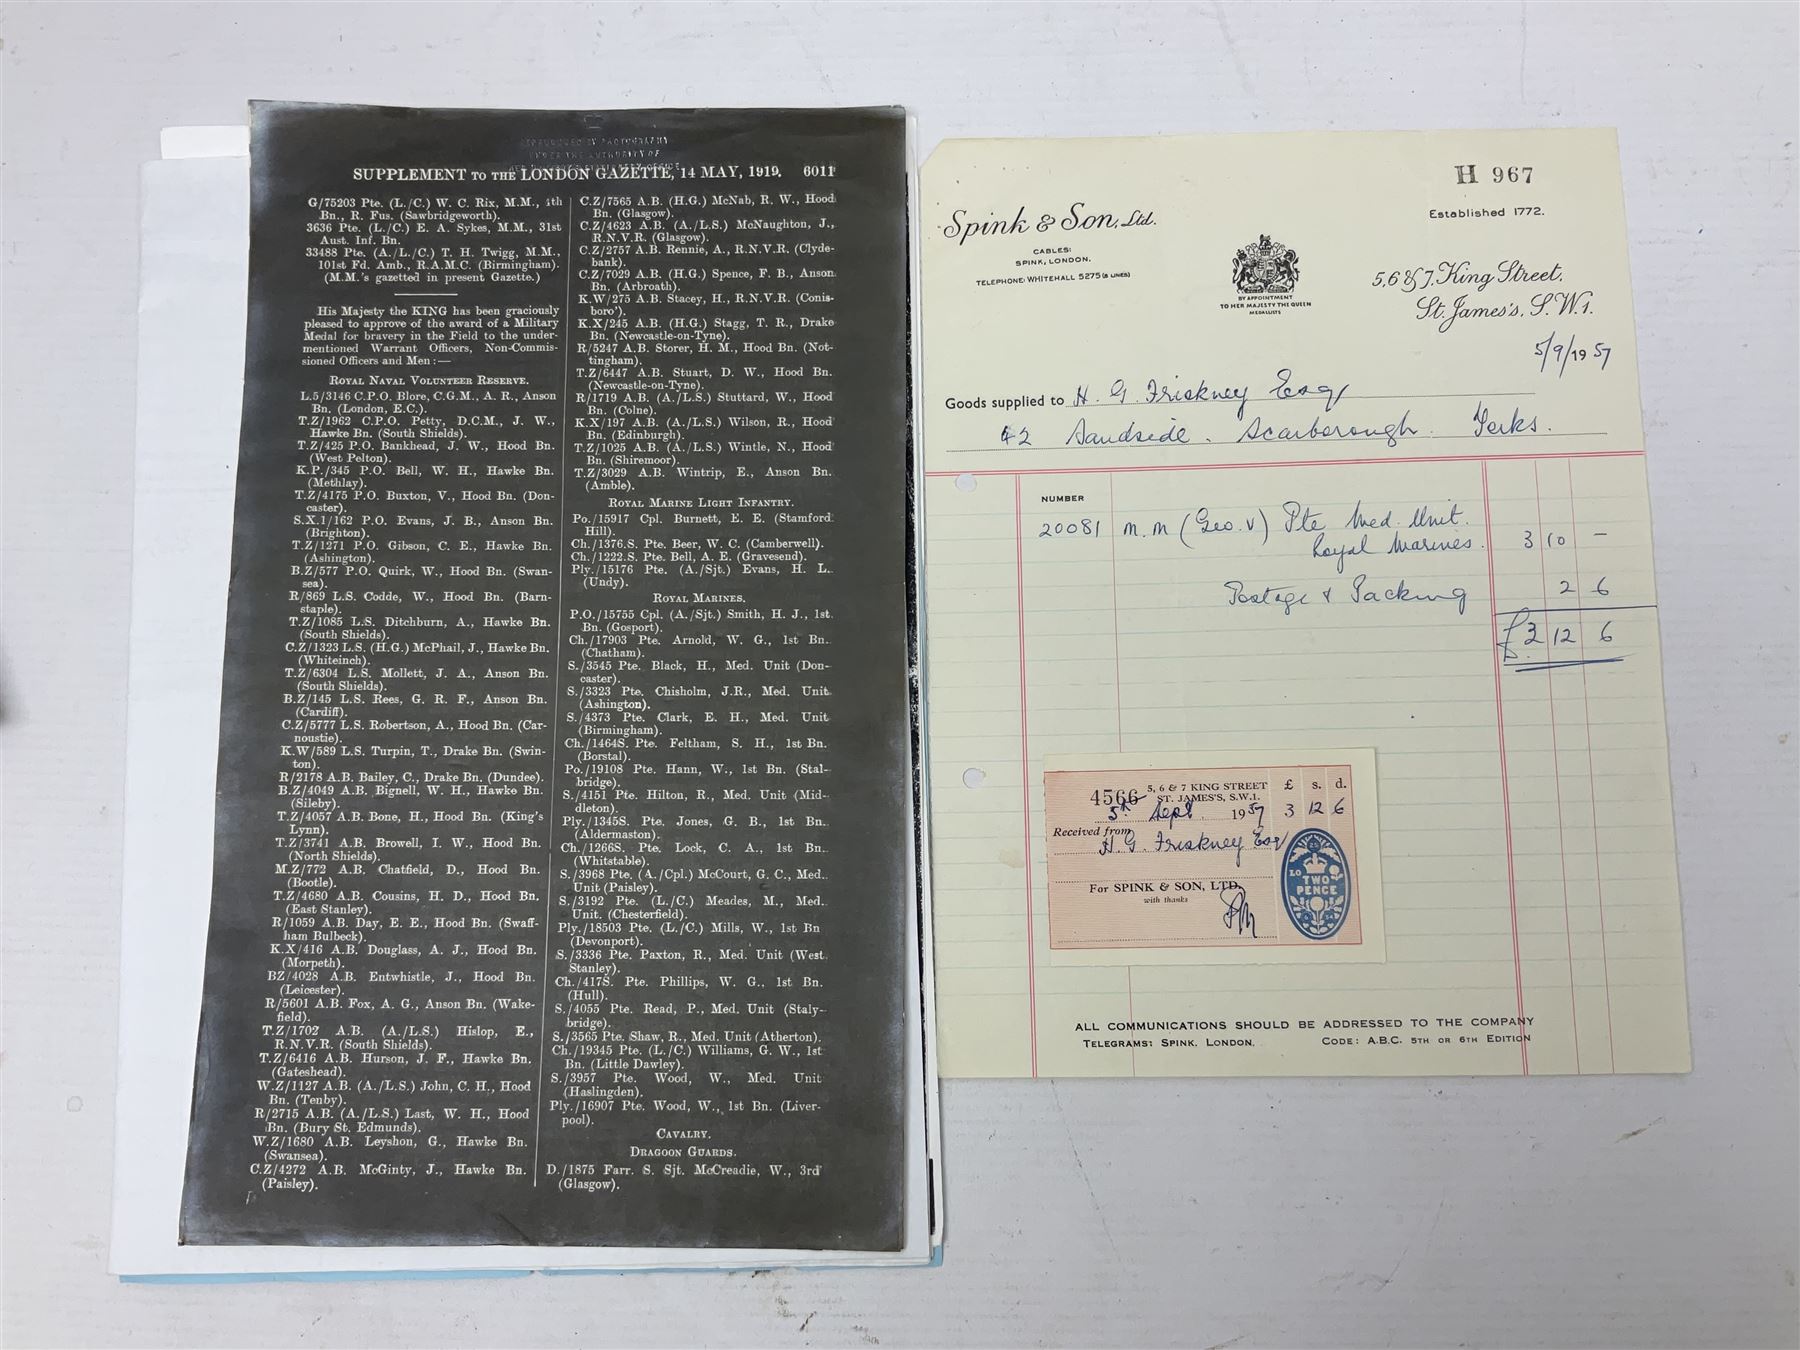 REPRODUCED BY PHOTOGRAPHY
UNDER THE AUTHORITY OF
SUPPLEMENT TO THE LONDON GAZETTE, 14 MAY, 1919. 6011
G/75203 Pte. (L./C.) W. C. Rix, M.M., 4th
Bn., R. Fus. (Sawbridgeworth).
3636 Pte. (L./C.) E. A. Sykes, M.M., 31st
Aust. Inf. Bn.
33488 Pte. (A./L./C.) T. H. Twigg, M.M.,
101st Fd. Amb., R.A.M.C. (Birmingham).
(M.M.'s gazetted in present Gazette.)
His Majesty the KING has been graciously
pleased to approve of the award of a Military
Medal for bravery in the Field to the under-
mentioned Warrant Officers, Non-Commis-
sioned Officers and Men:—
ROYAL NAVAL VOLUNTEER RESERVE.
L.5/3146 C.P.O. Blore, C.G.M., A. R., Anson
Bn. (London, E.C.).
T.Z/1962 C.P.O. Petty, D.C.M., J. W.,
Hawke Bn. (South Shields).
T.Z/425 P.O. Bankhead, J. W., Hood Bn.
(West Pelton).
K.P./345 P.O. Bell, W. H., Hawke Bn.
(Methlay).
T.Z/4175 P.O. Buxton, V., Hood Bn. (Don-
caster).
S.X.1/162 P.O. Evans, J. B., Anson Bn.
(Brighton).
T.Z/1271 P.O. Gibson, C. E., Hawke Bn.
(Ashington).
B.Z/577 P.O. Quirk, W., Hood Bn. (Swan-
sea).
R/869 L.S. Codde, W., Hood Bn. (Barn-
staple).
T.Z/1085 L.S. Ditchburn, A., Hawke Bn.
(South Shields).
C.Z/1323 L.S. (H.G.) McPhail, J., Hawke Bn.
(Whiteinch).
T.Z/6304 L.S. Mollett, J. A., Anson Bn.
(South Shields).
B.Z/145 L.S. Rees, G. R. F., Anson Bn.
(Cardiff).
C.Z/5777 L.S. Robertson, A., Hood Bn. (Car-
noustie).
K.W/589 L.S. Turpin, T., Drake Bn. (Swin-
ton).
R/2178 A.B. Bailey, C., Drake Bn. (Dundee).
B.Z/4049 A.B. Bignell, W. H., Hawke Bn.
(Sileby).
T.Z/4057 A.B. Bone, H., Hood Bn. (King's
Lynn).
T.Z/3741 A.B. Browell, I. W., Hood Bn.
(North Shields).
M.Z/772 A.B. Chatfield, D., Hood Bn.
(Bootle).
T.Z/4680 A.B. Cousins, H. D., Hood Bn.
(East Stanley).
R/1059 A.B. Day, E. E., Hood Bn. (Swaff-
ham Bulbeck).
K.X/416 A.B. Douglass, A. J., Hood Bn.
(Morpeth).
BZ/4028 A.B. Entwhistle, J., Hood Bn.
(Leicester).
R/5601 A.B. Fox, A. G., Anson Bn. (Wake-
field).
T.Z/1702 A.B. (A./L.S.) Hislop, E.,
R.N.V.R. (South Shields).
T.Z/6416 A.B. Hurson, J. F., Hawke Bn.
(Gateshead).
W.Z/1127 A.B. (A./L.S.) John, C. H., Hood
Bn. (Tenby).
R/2715 A.B. (A./L.S.) Last, W. H., Hood
Bn. (Bury St. Edmunds).
W.Z/1680 A.B. Leyshon, G., Hawke Bn.
(Swansea).
C.Z/4272 A.B. McGinty, J., Hawke Bn.
(Paisley).
C.Z/7565 A.B. (H.G.) McNab, R. W., Hood
Bn. (Glasgow).
C.Z/4623 A.B. (A./L.S.) McNaughton, J.,
R.N.V.R. (Glasgow).
C.Z/2757 A.B. Rennie, A., R.N.V.R. (Clyde-
bank).
C.Z/7029 A.B. (H.G.) Spence, F. B., Anson
Bn. (Arbroath).
K.W/275 A.B. Stacey, H., R.N.V.R. (Conis-
boro').
K.X/245 A.B. (H.G.) Stagg, T. R., Drake
Bn. (Newcastle-on-Tyne).
R/5247 A.B. Storer, H. M., Hood Bn. (Not-
tingham).
T.Z/6447 A.B. Stuart, D. W., Hood Bn.
(Newcastle-on-Tyne).
R/1719 A.B. (A./L.S.) Stuttard, W., Hood
Bn. (Colne).
K.X/197 A.B. (A./L.S.) Wilson, R., Hood
Bn. (Edinburgh).
T.Z/1025 A.B. (A./L.S.) Wintle, N., Hood
Bn. (Shiremoor).
T.Z/3029 A.B. Wintrip, E., Anson Bn.
(Amble).
ROYAL MARINE LIGHT INFANTRY.
Po./15917 Cpl. Burnett, E. E. (Stamford
Hill).
Ch./1376.S. Pte. Beer, W. C. (Camberwell).
Ch./1222.S. Pte. Bell, A. E. (Gravesend).
Ply./15176 Pte. (A./Sjt.) Evans, H. L.
(Undy).
ROYAL MARINES.
P.O./15755 Cpl. (A./Sjt.) Smith, H. J., 1st
Bn. (Gosport).
Ch./17903 Pte. Arnold, W. G., 1st Bn.
(Chatham).
S./3545 Pte. Black, H., Med. Unit (Don-
caster).
S./3323 Pte. Chisholm, J.R., Med. Unit
(Ashington).
S./4373 Pte. Clark, E. H., Med. Unit
(Birmingham).
Ch./1464S. Pte. Feltham, S. H., 1st Bn.
(Borstal).
Po./19108 Pte. Hann, W., 1st Bn. (Stal-
bridge).
S./4151 Pte. Hilton, R., Med. Unit (Mid-
dleton).
Ply./1345S. Pte. Jones, G. B., 1st Bn.
(Aldermaston).
Ch./1266S. Pte. Lock, C. A., 1st Bn.
(Whitstable).
S./3968 Pte. (A./Cpl.) McCourt, G. C., Med.
Unit (Paisley).
S./3192 Pte. (L./C.) Meades, M., Med.
Unit. (Chesterfield).
Ply./18503 Pte. (L./C.) Mills, W., 1st Bn
(Devonport).
S./3336 Pte. Paxton, R., Med. Unit (West
Stanley).
Ch./417S. Pte. Phillips, W. G., 1st Bn.
(Hull).
S./4055 Pte. Read, P., Med. Unit (Staly-
bridge).
S./3565 Pte. Shaw, R., Med. Unit (Atherton).
Ch./19345 Pte. (L./C.) Williams, G. W., 1st
Bn. (Little Dawley).
S./3957 Pte. Wood, W., Med. Unit
(Haslingden).
Ply./16907 Pte. Wood, W., 1st Bn. (Liver-
pool).
CAVALRY.
DRAGOON GUARDS.
D./1875 Farr. S. Sjt. McCreadie, W., 3rd
(Glasgow).
H 967
Spink & Son, Ltd.
Established 1772.
CABLES:
SPINK, LONDON.
TELEPHONE: WHITEHALL 5275 (5 LINES)
BY APPOINTMENT
TO HER MAJESTY THE QUEEN
MEDALLISTS
5, 6 & 7, King Street,
St. James's, S.W.1.
5/9/1957
Goods supplied to H. G. Friskney Esq
42 Sandside. Scarborough. Yorks.
NUMBER
20081 M.M (Geo. V) Pte Med. Unit.
Royal Marines. 3 10 -
Postage & Packing 2 6
£3 12 6
4566 5, 6 & 7 KING STREET £ s. d.
ST. JAMES'S, S.W.1.
5th Sept 1957 3 12 6
Received from
H G. Friskney Esq
For SPINK & SON, LTD.
with thanks
TWO
PENCE
ALL COMMUNICATIONS SHOULD BE ADDRESSED TO THE COMPANY
TELEGRAMS: SPINK. LONDON. CODE: A.B.C. 5TH OR 6TH EDITION